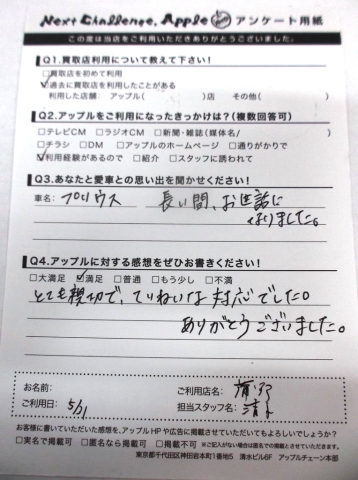 Next Challenge, Apple アンケート用紙
この度は当店をご利用いただきありがとうございました。
Q1.買取店利用について教えて下さい!
□買取店を初めて利用
☑過去に買取店を利用したことがある
利用した店舗: アップル( )店 その他( )
Q2.アップルをご利用になったきっかけは?(複数回答可)
□テレビCM □ラジオCM □新聞・雑誌(媒体名/ )
□チラシ □DM □アップルのホームページ □通りがかりで
☑利用経験があるので □紹介 □スタッフに誘われて
Q3.あなたと愛車との思い出を聞かせください!
車名: プリウス 長い間、お世話に
なりました。
Q4.アップルに対する感想をぜひお書きください!
□大満足 ☑満足 □普通 □もう少し □不満
とても親切で、ていねいな対応でした。
ありがとうございました。
お名前:
ご利用店名:
ご利用日: 5/31
担当スタッフ名: 清水
お客様に書いていただいた感想を、アップルHPや広告に掲載させていただいてもよろしいでしょうか?
□実名で掲載可 □匿名なら掲載可 □掲載不可 ※ご記入がない場合は匿名での掲載とさせていただきます。
東京都千代田区神田岩本町1番地5 清水ビル6F アップルチェーン本部